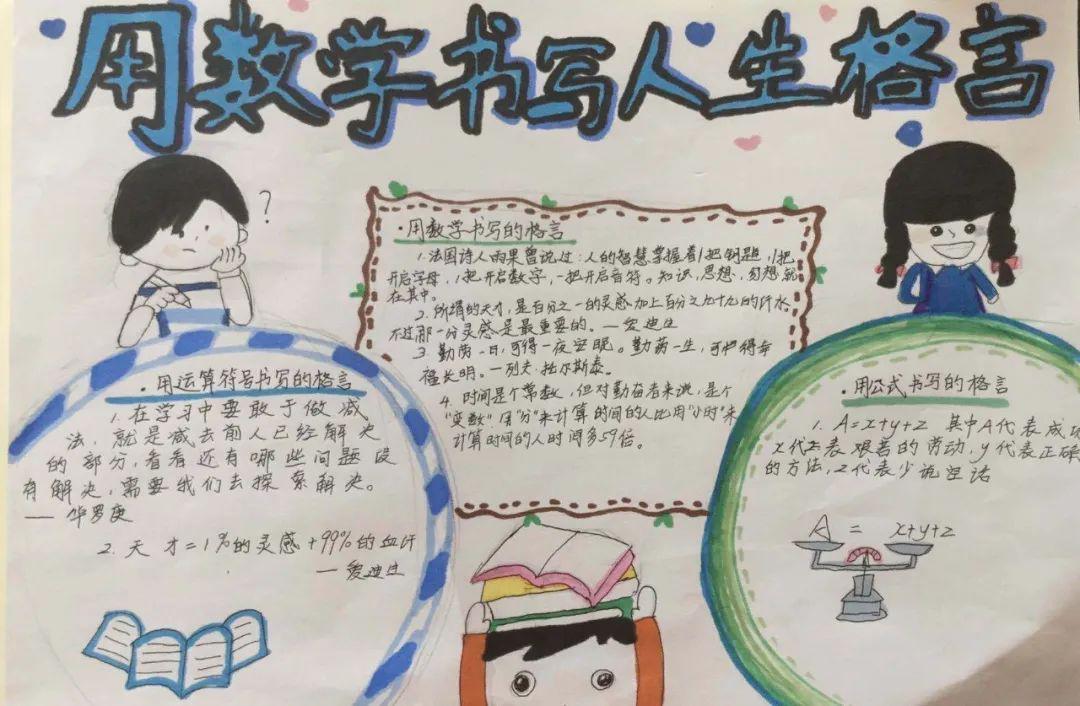 用数学书写人生格言
?
·用运算符号书写的格言
1.在学习中要敢于做减
法,就是减去前人已经解决
的部分,看看还有哪些问题没
有解决,需要我们去探索解决。
——华罗庚
2.天才=1%的灵感+99%的血汗
——爱迪生
·用数学书写的格言
1.法国诗人雨果曾说过:人的智慧掌握着1把钥匙,1把
开启字母,1把开启数字,一把开启音符。知识,思想,幻想就
在其中。
2.所谓的天才,是百分之一的灵感加上百分之九十九的汗水,
不过那一分灵感是最重要的。—爱迪生
3.勤劳一日,可得一夜安眠。勤劳一生,可得幸
福长明。—列夫·托尔斯泰。
4.时间是个常数,但对勤奋者来说,是个
"变数".用"分"来计算时间的人比用"小时"来
计算时间的人时间多59倍。
·用公式书写的格言
1.A=x+y+z 其中A代表成功
x代表艰苦的劳动,y代表正确
的方法,z代表少说空话
A = x+y+z